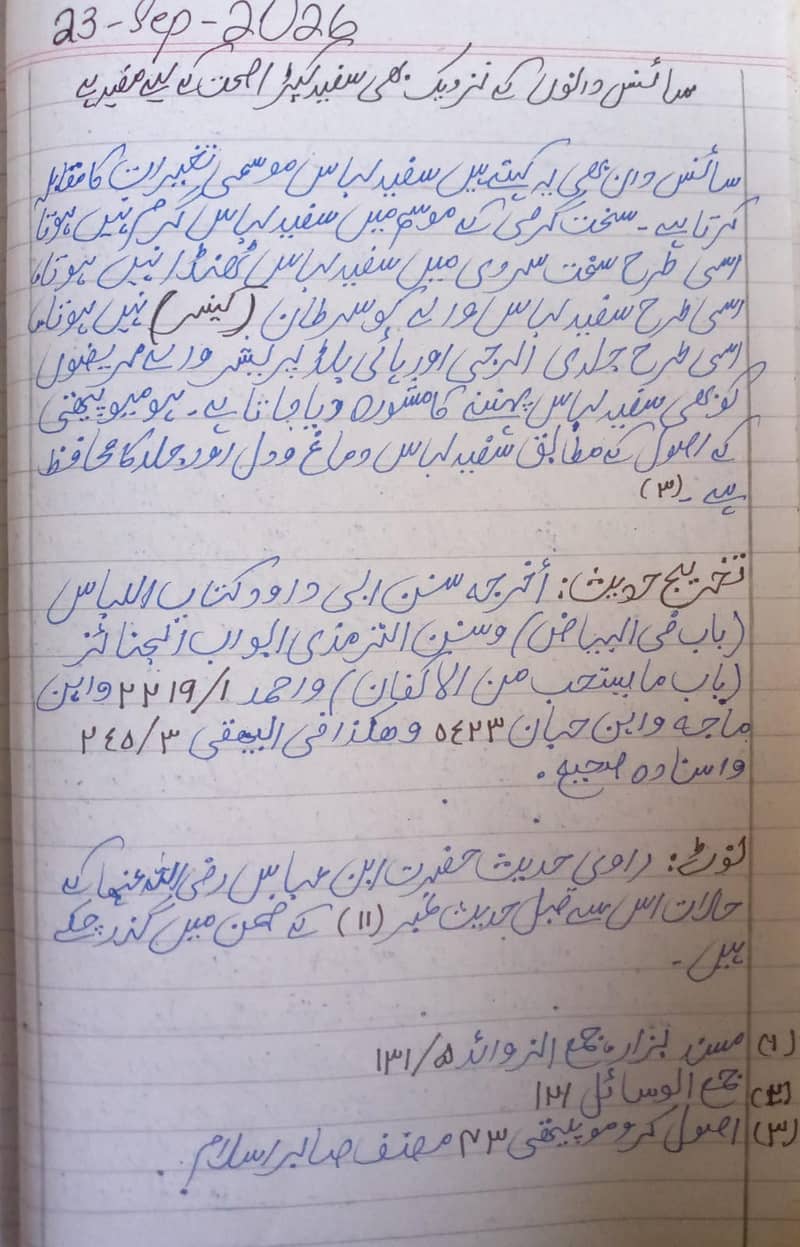 23-Sep-2026
سائنس دانوں کے نزدیک بھی سفید کپڑا صحت کے لیے مفید ہے
سائنس دان بھی یہ کہتے ہیں سفید لباس موسمی تغیرات کا مقابلہ
کرتا ہے۔ سخت گرمی کے موسم میں سفید لباس گرم نہیں ہوتا
اسی طرح سخت سردی میں سفید لباس ٹھنڈا نہیں ہوتا،
اسی طرح سفید لباس والے کو سرطان (کینسر) نہیں ہوتا،
اسی طرح جلدی الرجی اور ہائی بلڈ پریشر والے مریضوں
کو بھی سفید لباس پہننے کا مشورہ دیا جاتا ہے۔ ہومیوپیتھی
کے اصول کے مطابق سفید لباس دماغ و دل اور جلد کا محافظ
ہے۔ (۳)
تخریج حدیث: أخرجه سنن ابی داود کتاب اللباس
(باب فی البیاض) وسنن الترمذی ابواب الجنائز
(باب ما یستحب من الاکفان) واحمد ۲۲۱۹/۱ وابن
ماجة وابن حبان ٥٤٢٣ وهكذا فی البیهقی ٢٤٥/٣
واسناده صحیح.
نوٹ: راوی حدیث حضرت ابن عباس رضی اللہ عنہما کے
حالات اس سے قبل حدیث نمبر (۱۱) کے ضمن میں گذر چکے
ہیں۔
(۱) مسند بزار، مجمع الزوائد ۱۳۱/۵
(۲) جمع الوسائل ۱۳۱
(۳) اصول کروموپیتھی ۷۳ مصنف صابر اسلام.